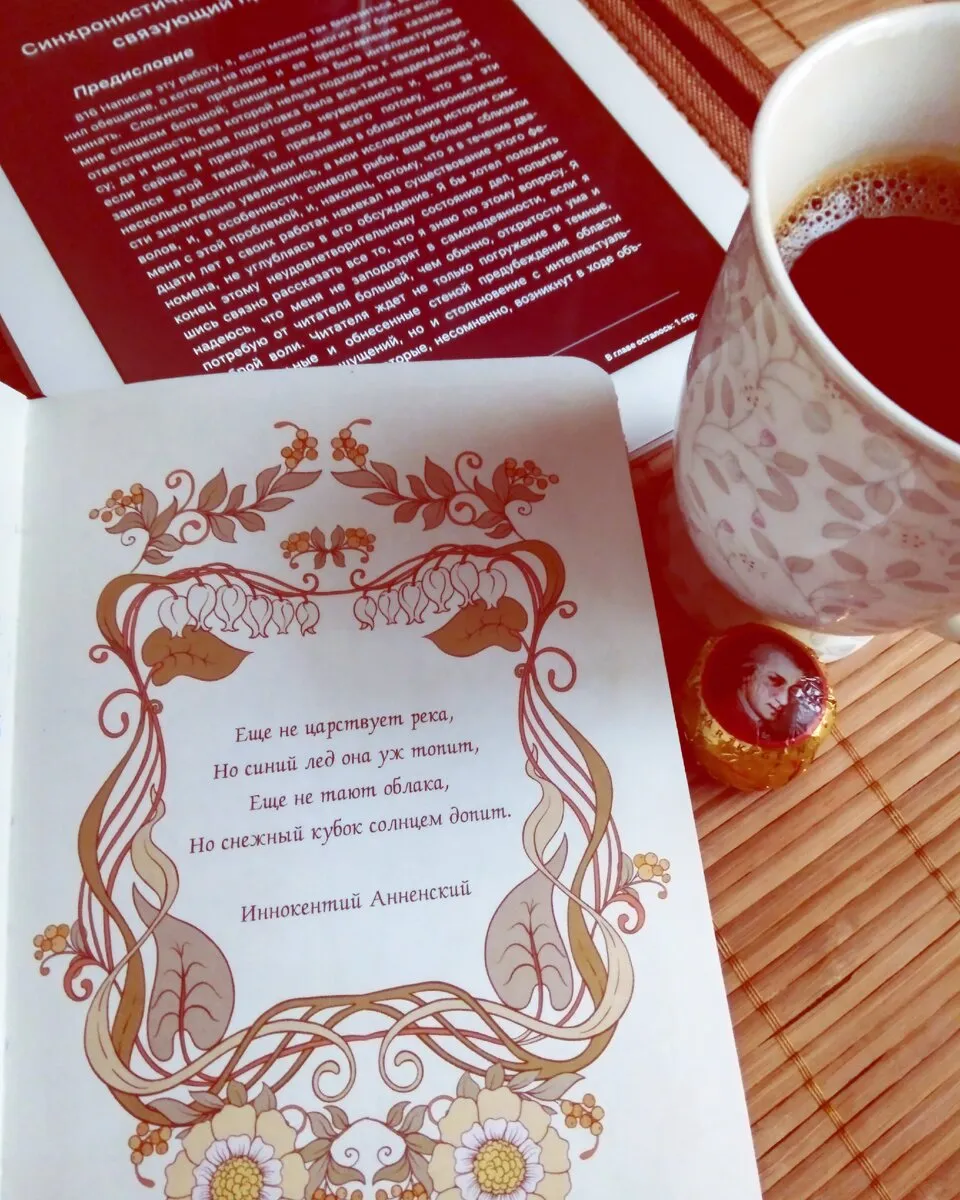 Синхронистичн
связующий
Предисловие
816 Написав эту работу, я, если можно так выразиться,
нил обещание, о котором на протяжении многих лет брался испол
минать. Сложность проблемы и ее представление казалась
мне слишком большой; слишком велика была интеллектуальная
ответственность, без которой нельзя подходить к такому вопро-
су, да и моя научная подготовка была все-таки неадекватной. И
если сейчас я преодолел свою неуверенность и, наконец-то,
занялся этой темой, то прежде всего потому, что за эти
несколько десятилетий мои познания в области синхронистично-
сти значительно увеличились, а мои исследования истории сим-
волов, и, в особенности, символа рыбы, еще больше сблизили
меня с этой проблемой, и, наконец, потому, что я в течение два-
дцати лет в своих работах намекал на существование этого фе-
номена, не углубляясь в его обсуждение. Я бы хотел положить
конец этому неудовлетворительному состоянию дел, попытав-
шись связно рассказать все то, что я знаю по этому вопросу. Я
надеюсь, что меня не заподозрят в самонадеянности, если я
потребую от читателя большей, чем обычно, открытости ума и
брой воли. Читателя ждет не только погружение в темные,
ные и обнесенные стеной предубеждения области
щущений, но и столкновение с интеллектуаль-
торые, несомненно, возникнут в ходе об-
В главе осталось: 1 стр.
Еще не царствует река,
Но синий лед она уж топит,
Еще не тают облака,
Но снежный кубок солнцем допит.
Иннокентий Анненский